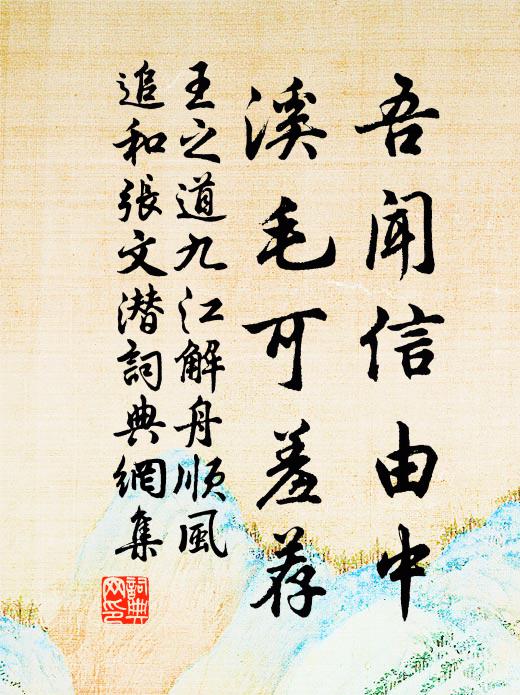 吾闻信由中
溪毛可羞荐
王之道九江解舟顺風
追和張文潜詞典網集
詞典網印